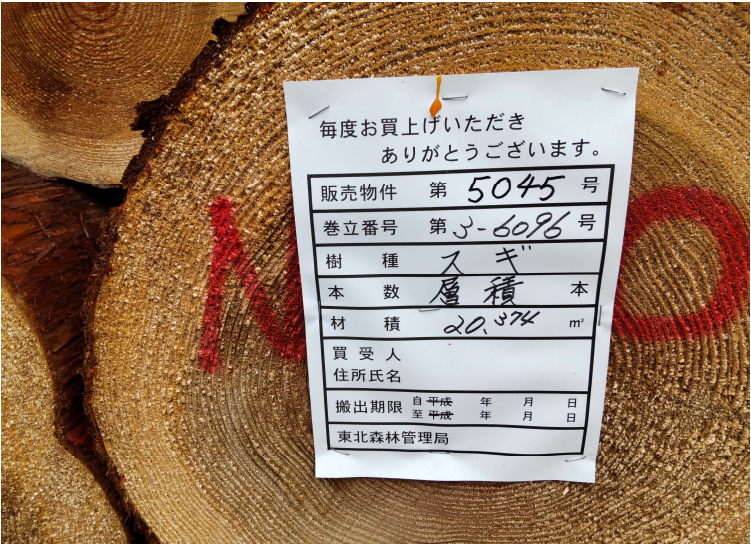 毎度お買上げいただき
ありがとうございます。
販売物件 第 5045 号
巻立番号 第 3-6096 号
樹種 スギ
本数 層積 本
材積 20.374 m³
買受人
住所氏名
搬出期限 自 平成 年 月 日
至 平成 年 月 日
東北森林管理局